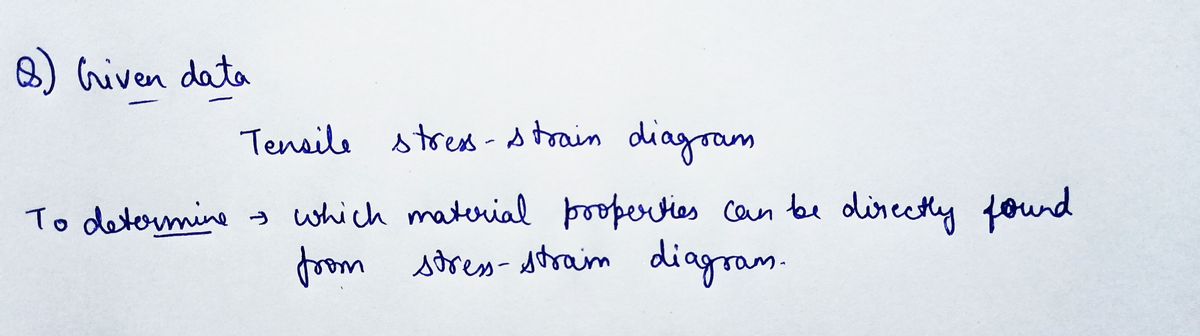 Q) Given data
Tensile stress-strain diagram
To determine → which material properties can be directly found
from stress-strain diagram.